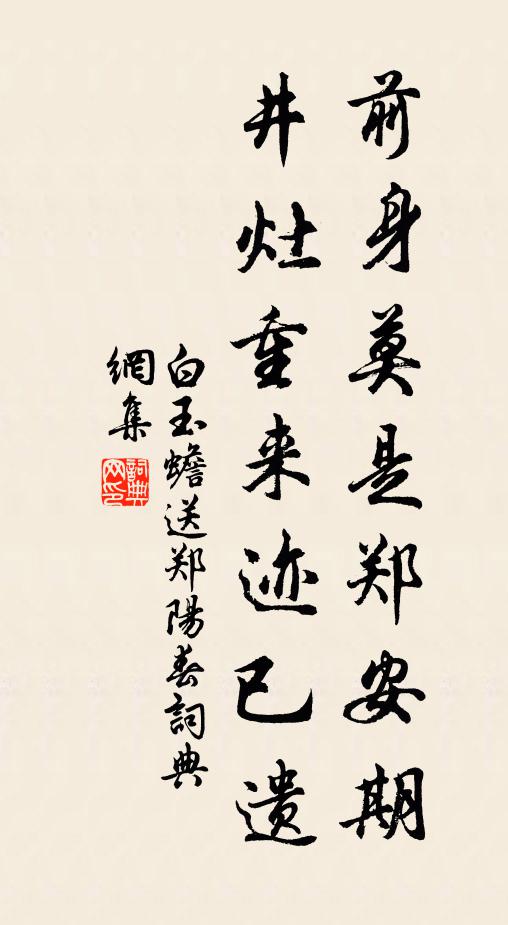 前身莫是郑安期
井灶重来迹已遗
白玉蟾送郑陽春詞典
網集
詞典网印